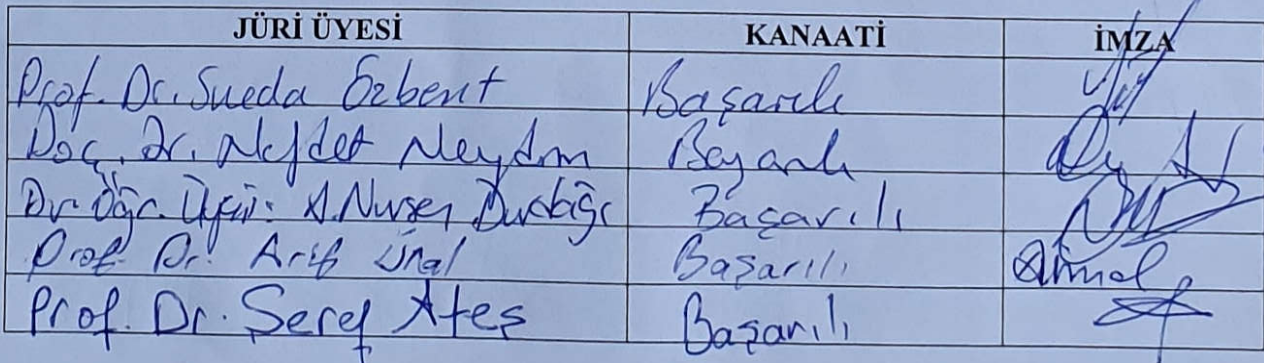 JÜRİ ÜYESİ KANAATİ İMZA
Prof. Dr. Sueda Özbent Başarılı
Doç. Dr. Necdet Neydim Başarılı
Dr. Öğr. Üyesi: A. Nursen Durdağı Başarılı
Prof. Dr. Arif Ünal Başarılı
Prof. Dr. Şeref Ateş Başarılı